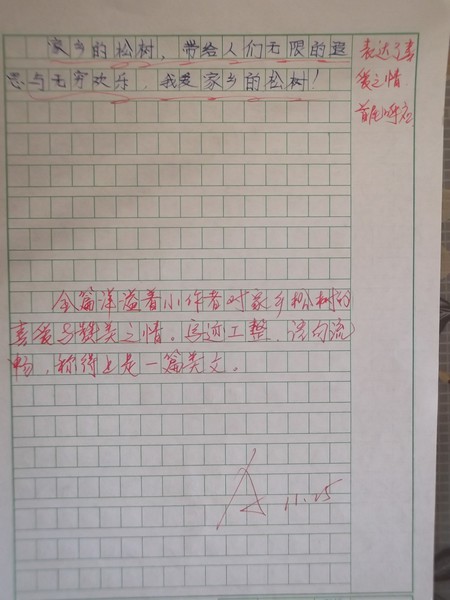 家乡的松树，带给人们无限的遐
思与无穷欢乐，我爱家乡的松树！
表达了喜
爱之情
首尾呼应
全篇洋溢着小作者对家乡松树的
喜爱与赞美之情。写迹工整，语句流
畅，称得上是一篇美文。
A 11.25